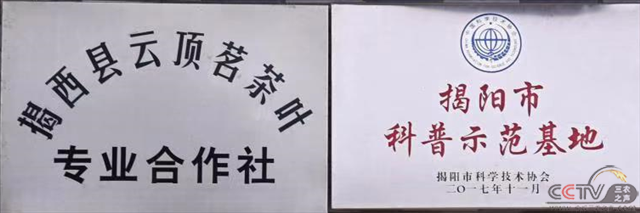 揭西县云顶茗茶叶
专业合作社
揭阳市
科普示范基地
揭阳市科学技术协会
二〇一七年十一月
CCTV
三农之声